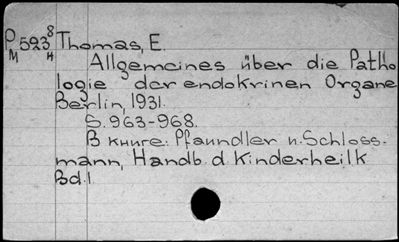 P 523⁸ Thomas, E.
M н
Allgemeines über die Patho
logie der endokrinen Organe
Berlin, 1931.
S. 963-968.
В книге: Pfaundler u. Schloss.
mann, Handb. d. Kinderheilk
Bd. 1